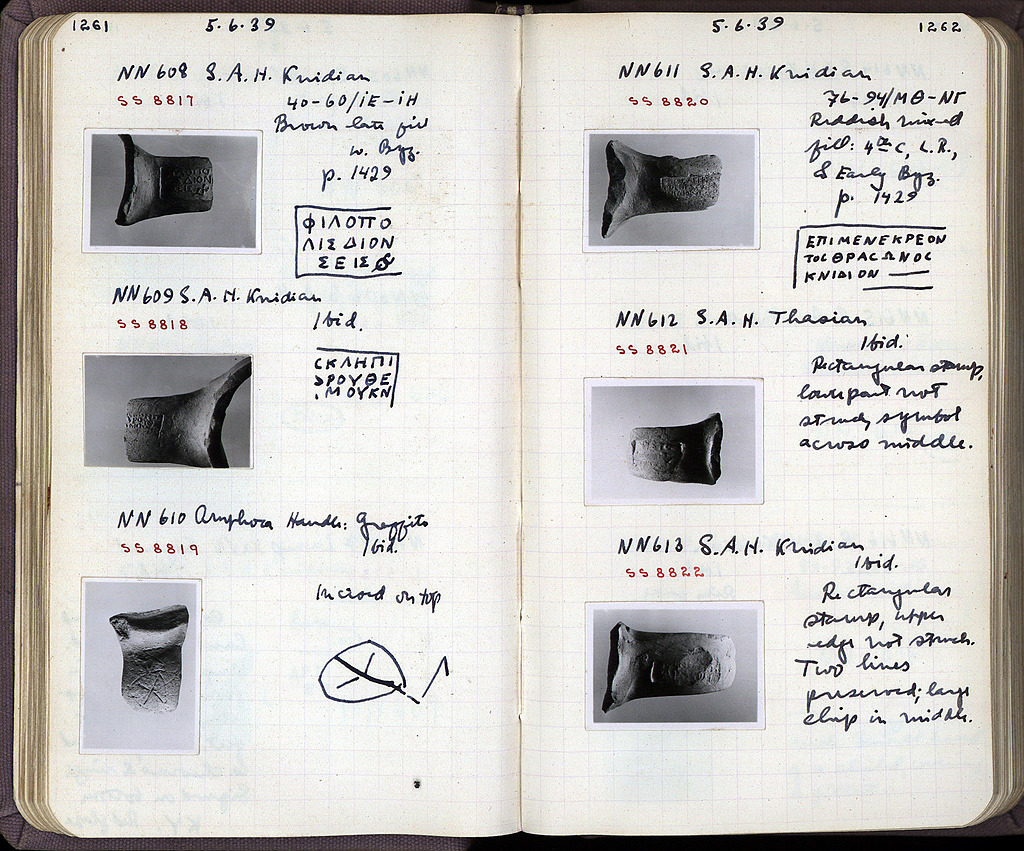 1261
5.6.39
NN 608 S.A.H. Knidian
SS 8817
40-60/ΙΕ-ΙΗ
Brown late fill
w. Byz.
p. 1429
ΦΙΛΟΠΟ
ΛΙΣ ΔΙΟΝ
ΣΕΙΣ
NN 609 S.A.H. Knidian
SS 8818
Ibid.
ϹΚΛΗΠΙ
ΡΟΥΘΕ
.ΜΟΥΚΝ
NN 610 Amphora Handle: Graffito
SS 8819
Ibid.
Incised on top
5.6.39
1262
NN 611 S.A.H. Knidian
SS 8820
76-94/ΜΘ-ΝΓ
Reddish mixed
fill: 4th C, L.R.,
& Early Byz.
p. 1429
ΕΠΙΜΕΝΕΚΡΕΟΝ
ΤΟϹΘΡΑϹΩΝΟϹ
ΚΝΙΔΙΟΝ
NN 612 S.A.H. Thasian
SS 8821
Ibid.
Rectangular stamp,
lower part not
struck, symbol
across middle.
NN 613 S.A.H. Knidian
SS 8822
Ibid.
Rectangular
stamp, upper
edge not struck.
Two lines
preserved; large
chip in middle.